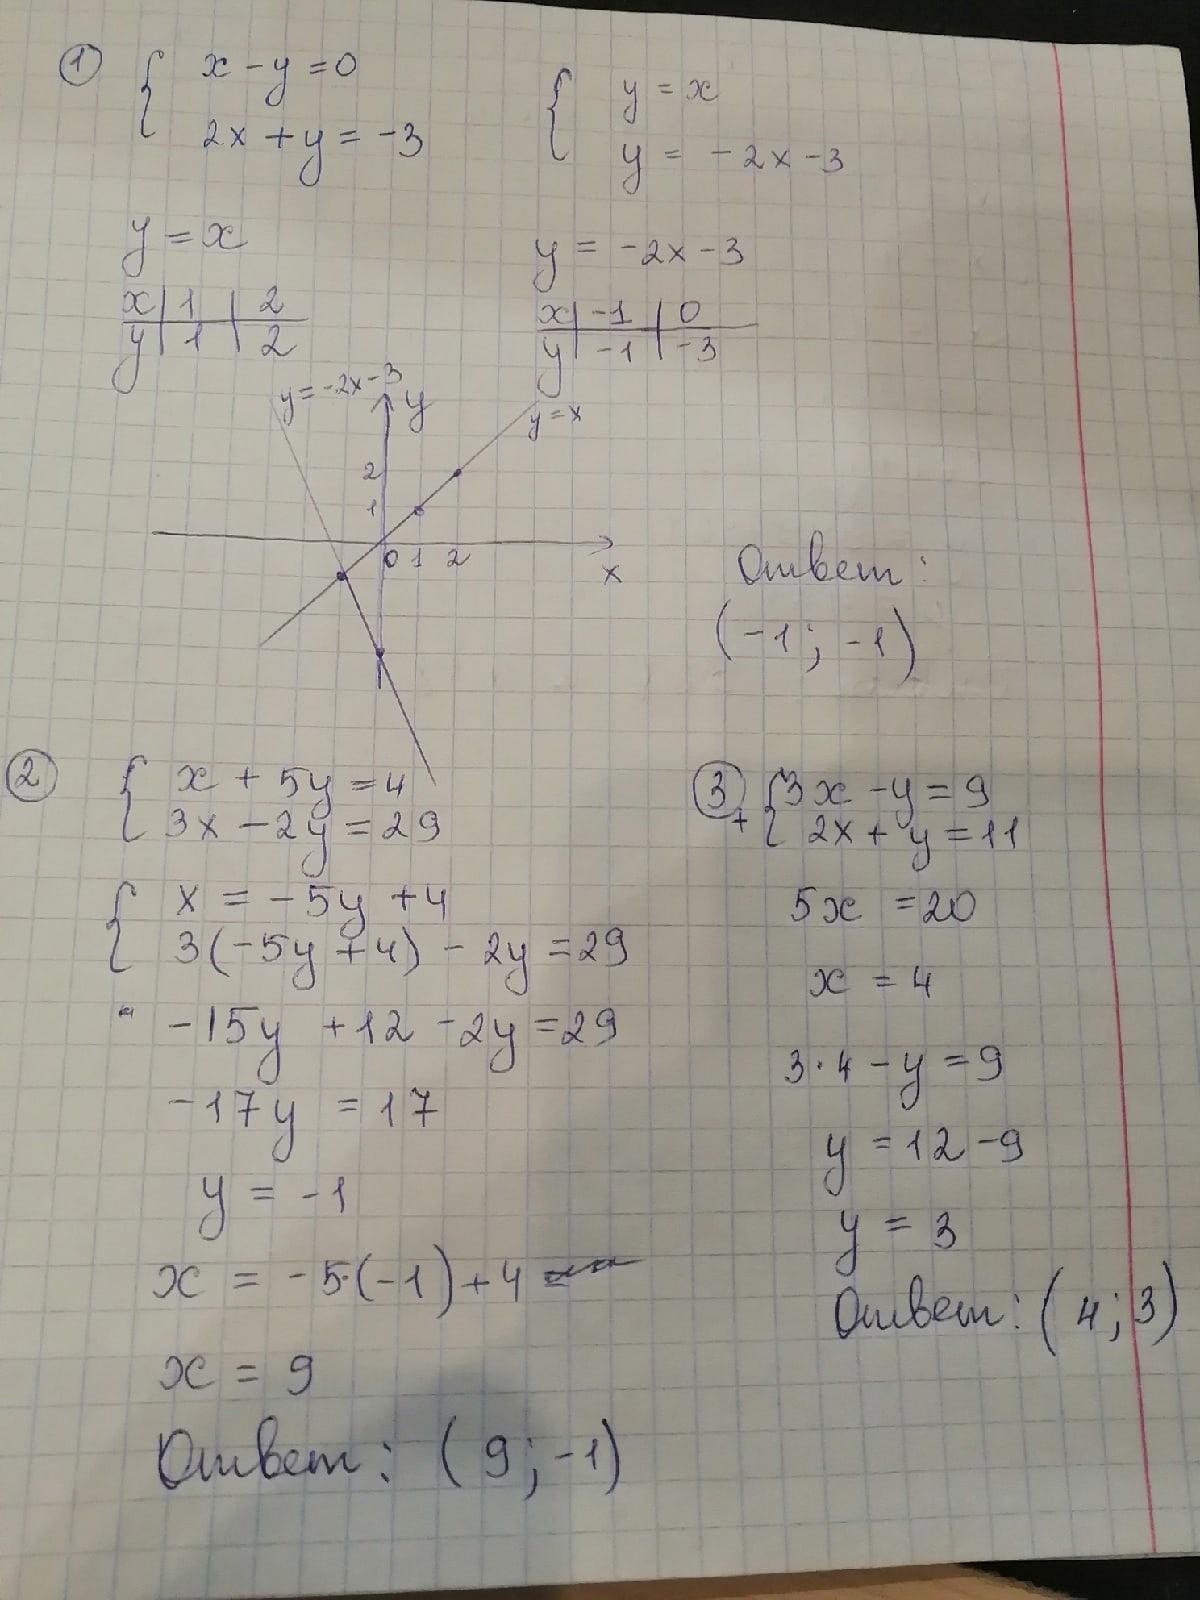 ① { x - y = 0
2x + y = -3
{ y = x
y = -2x - 3
y = x
x | 1 | 2
y | 1 | 2
y = -2x - 3
x | -1 | 0
y | -1 | -3
y = -2x - 3
y
y = x
2
1
0 1 2
x
Ответ:
(-1; -1)
② { x + 5y = 4
3x - 2y = 29
{ x = -5y + 4
3(-5y + 4) - 2y = 29
-15y + 12 - 2y = 29
-17y = 17
y = -1
x = -5·(-1) + 4
x = 9
Ответ: (9; -1)
③ + { 3x - y = 9
2x + y = 11
5x = 20
x = 4
3·4 - y = 9
y = 12 - 9
y = 3
Ответ: (4; 3)